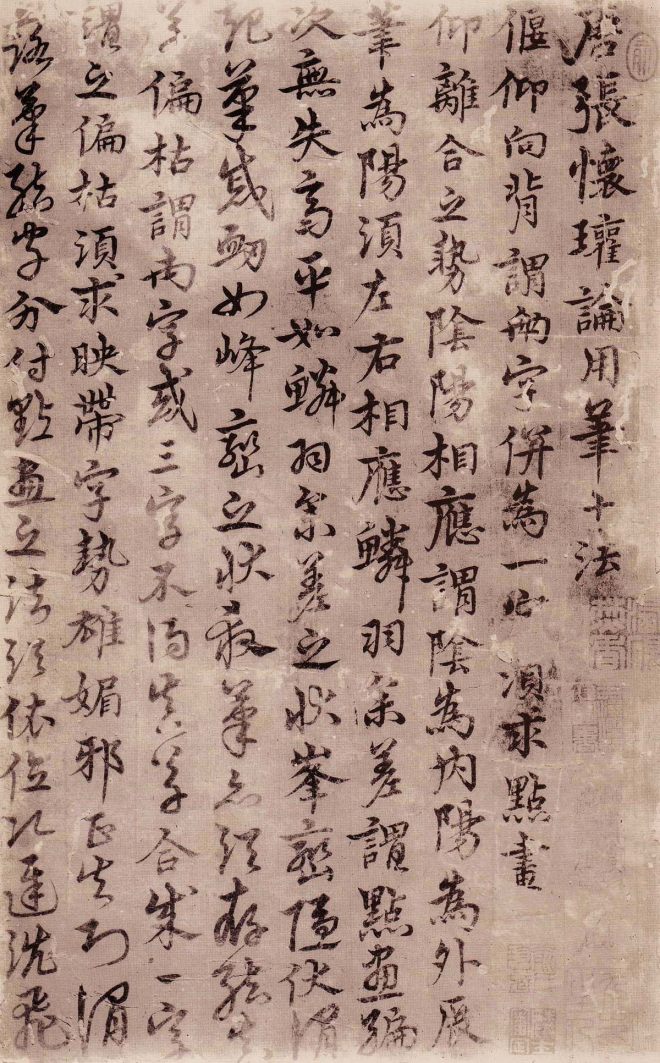 唐張懷瓘論用筆十法
偃仰向背謂兩字併為一字須求點畫
仰離合之勢陰陽相應謂陰為內陽為外展
筆為陽須左右相應鱗羽參差謂點畫編
次無失高平如鱗羽參差之狀峯巒隱伏謂
起筆蹙衂如峰巒之狀殺筆亦須存結
草偏枯謂兩字或三字不得真草合成一字
謂之偏枯須求映帶字勢雄媚邪正失則謂
落筆結字分付點畫之法須依位次遲澁飛